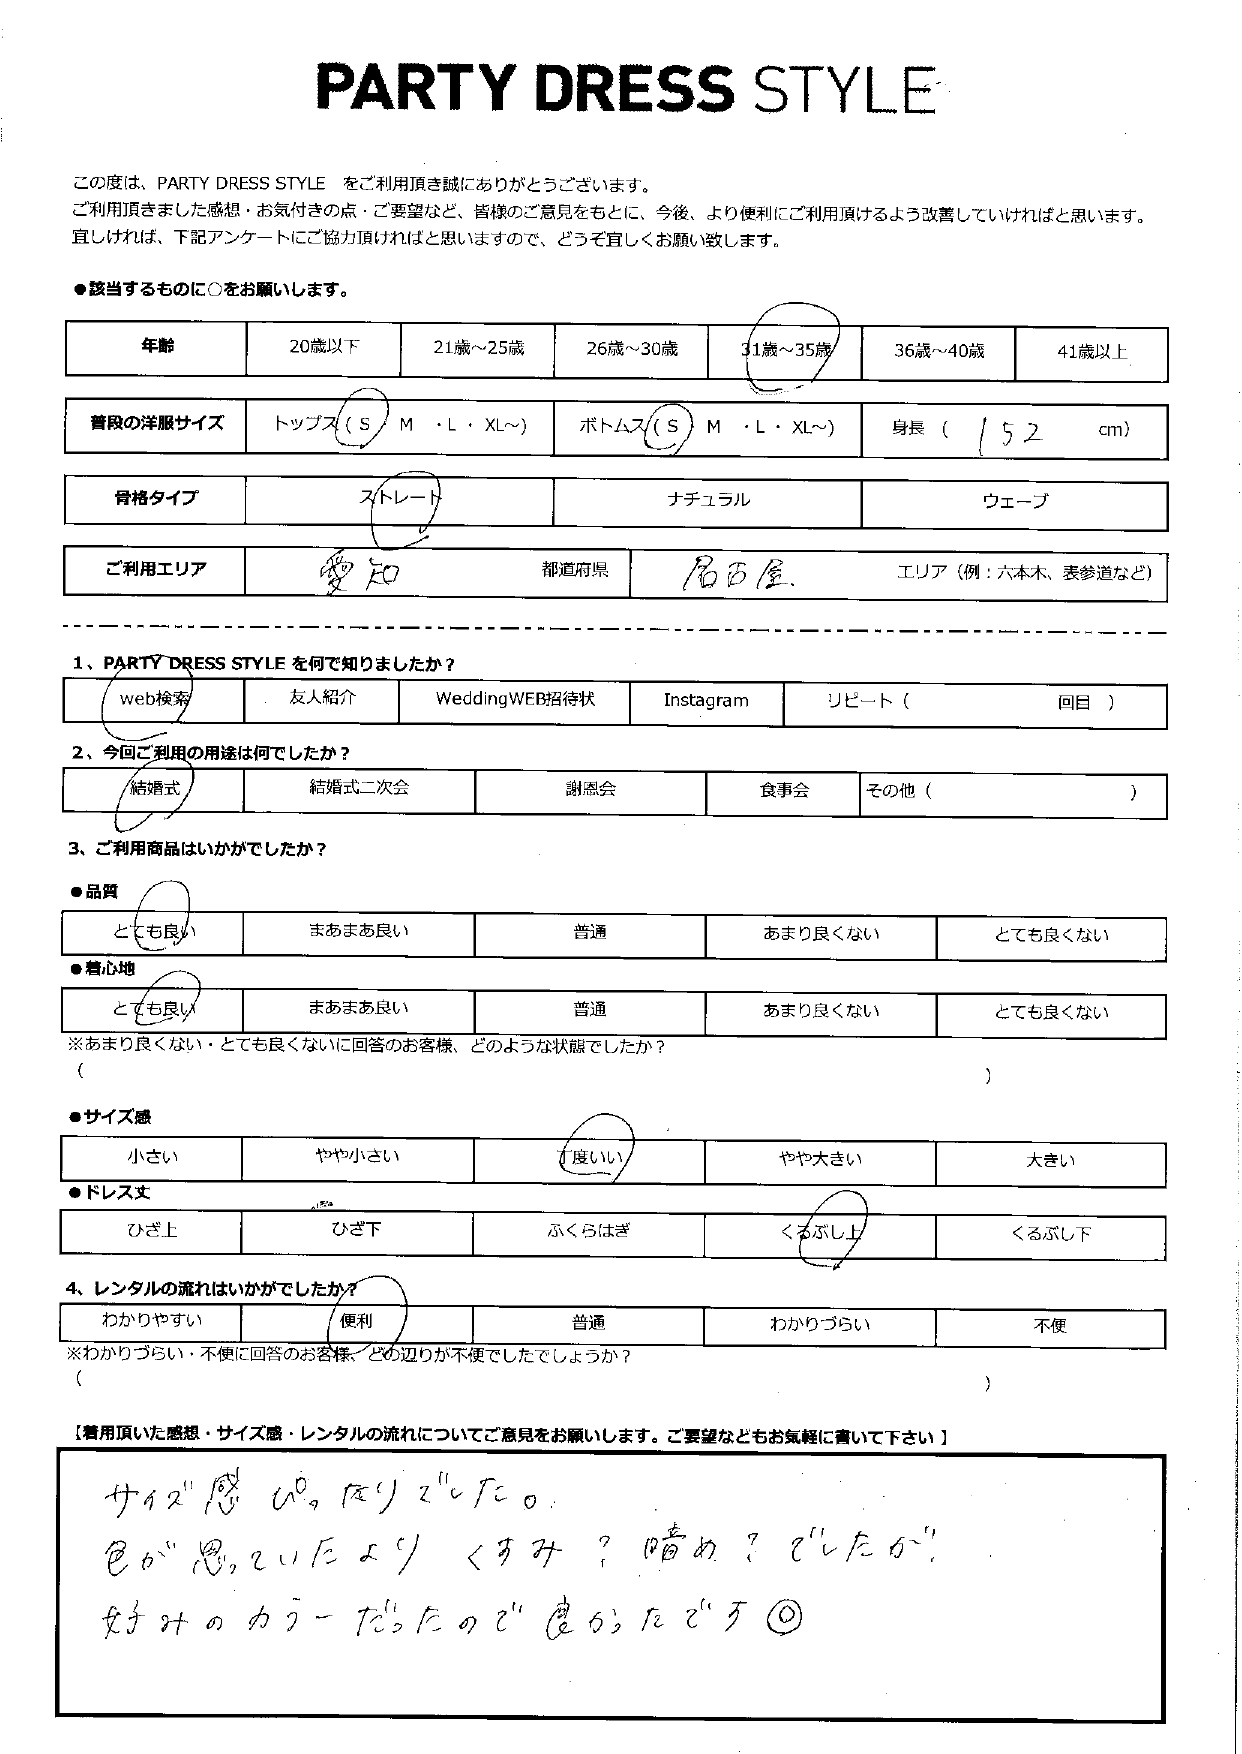 PARTY DRESS STYLE
この度は、PARTY DRESS STYLE をご利用頂き誠にありがとうございます。
ご利用頂きました感想・お気付きの点・ご要望など、皆様のご意見をもとに、今後、より便利にご利用頂けるよう改善していければと思います。
宜しければ、下記アンケートにご協力頂ければと思いますので、どうぞ宜しくお願い致します。
●該当するものに○をお願いします。
年齢 20歳以下 21歳～25歳 26歳～30歳 31歳～35歳 36歳～40歳 41歳以上
普段の洋服サイズ トップス（ S ・ M ・L ・ XL～） ボトムス（ S ・ M ・L ・ XL～） 身長（ 152 cm）
骨格タイプ ストレート ナチュラル ウェーブ
ご利用エリア 愛知 都道府県 名古屋. エリア（例：六本木、表参道など）
1、PARTY DRESS STYLE を何で知りましたか？
web検索 友人紹介 WeddingWEB招待状 Instagram リピート（ 回目 ）
2、今回ご利用の用途は何でしたか？
結婚式 結婚式二次会 謝恩会 食事会 その他（ ）
3、ご利用商品はいかがでしたか？
●品質
とても良い まあまあ良い 普通 あまり良くない とても良くない
●着心地
とても良い まあまあ良い 普通 あまり良くない とても良くない
※あまり良くない・とても良くないに回答のお客様、どのような状態でしたか？
（ ）
●サイズ感
小さい やや小さい 丁度いい やや大きい 大きい
●ドレス丈
ひざ上 ひざ下 ふくらはぎ くるぶし上 くるぶし下
4、レンタルの流れはいかがでしたか？
わかりやすい 便利 普通 わかりづらい 不便
※わかりづらい・不便に回答のお客様、どの辺りが不便でしたでしょうか？
（ ）
【着用頂いた感想・サイズ感・レンタルの流れについてご意見をお願いします。ご要望などもお気軽に書いて下さい 】
サイズ感 ぴったりでした。
色が思っていたより くすみ？暗め？でしたが
好みのカラーだったので良かったです◎